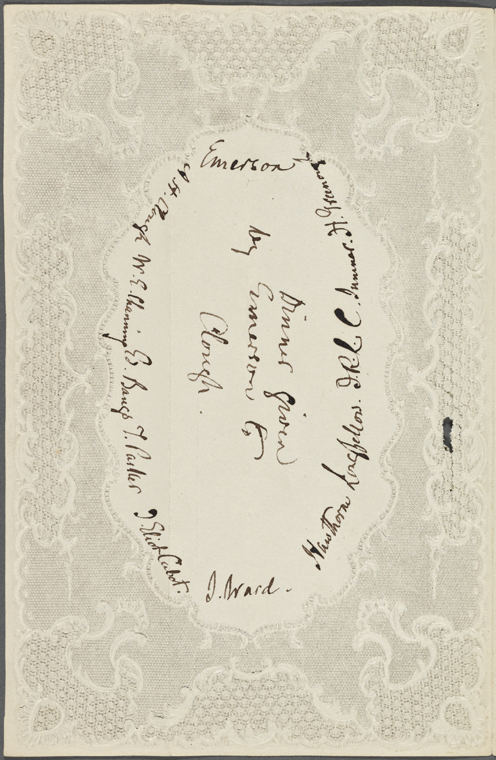 Emerson
H. Greenough
C. Sumner.
J. R. L.
Longfellow.
Hawthorn
S. Ward.
J Eliot Cabot.
T. Parker
Ed. Bangs
W. E. Channing
A. H. Clough
Dinner given
by Emerson to
Clough.